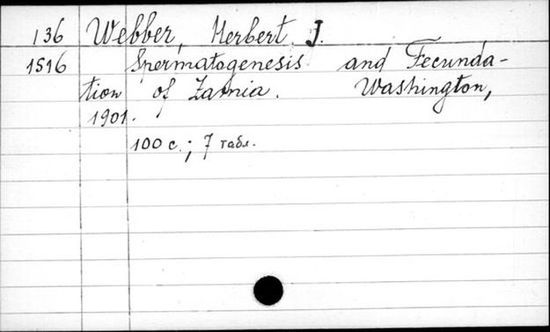 136 Webber, Herbert J.
1516 Spermatogenesis and Fecunda-
tion of Zamia. Washington,
1901.
100 с.; 7 табл.